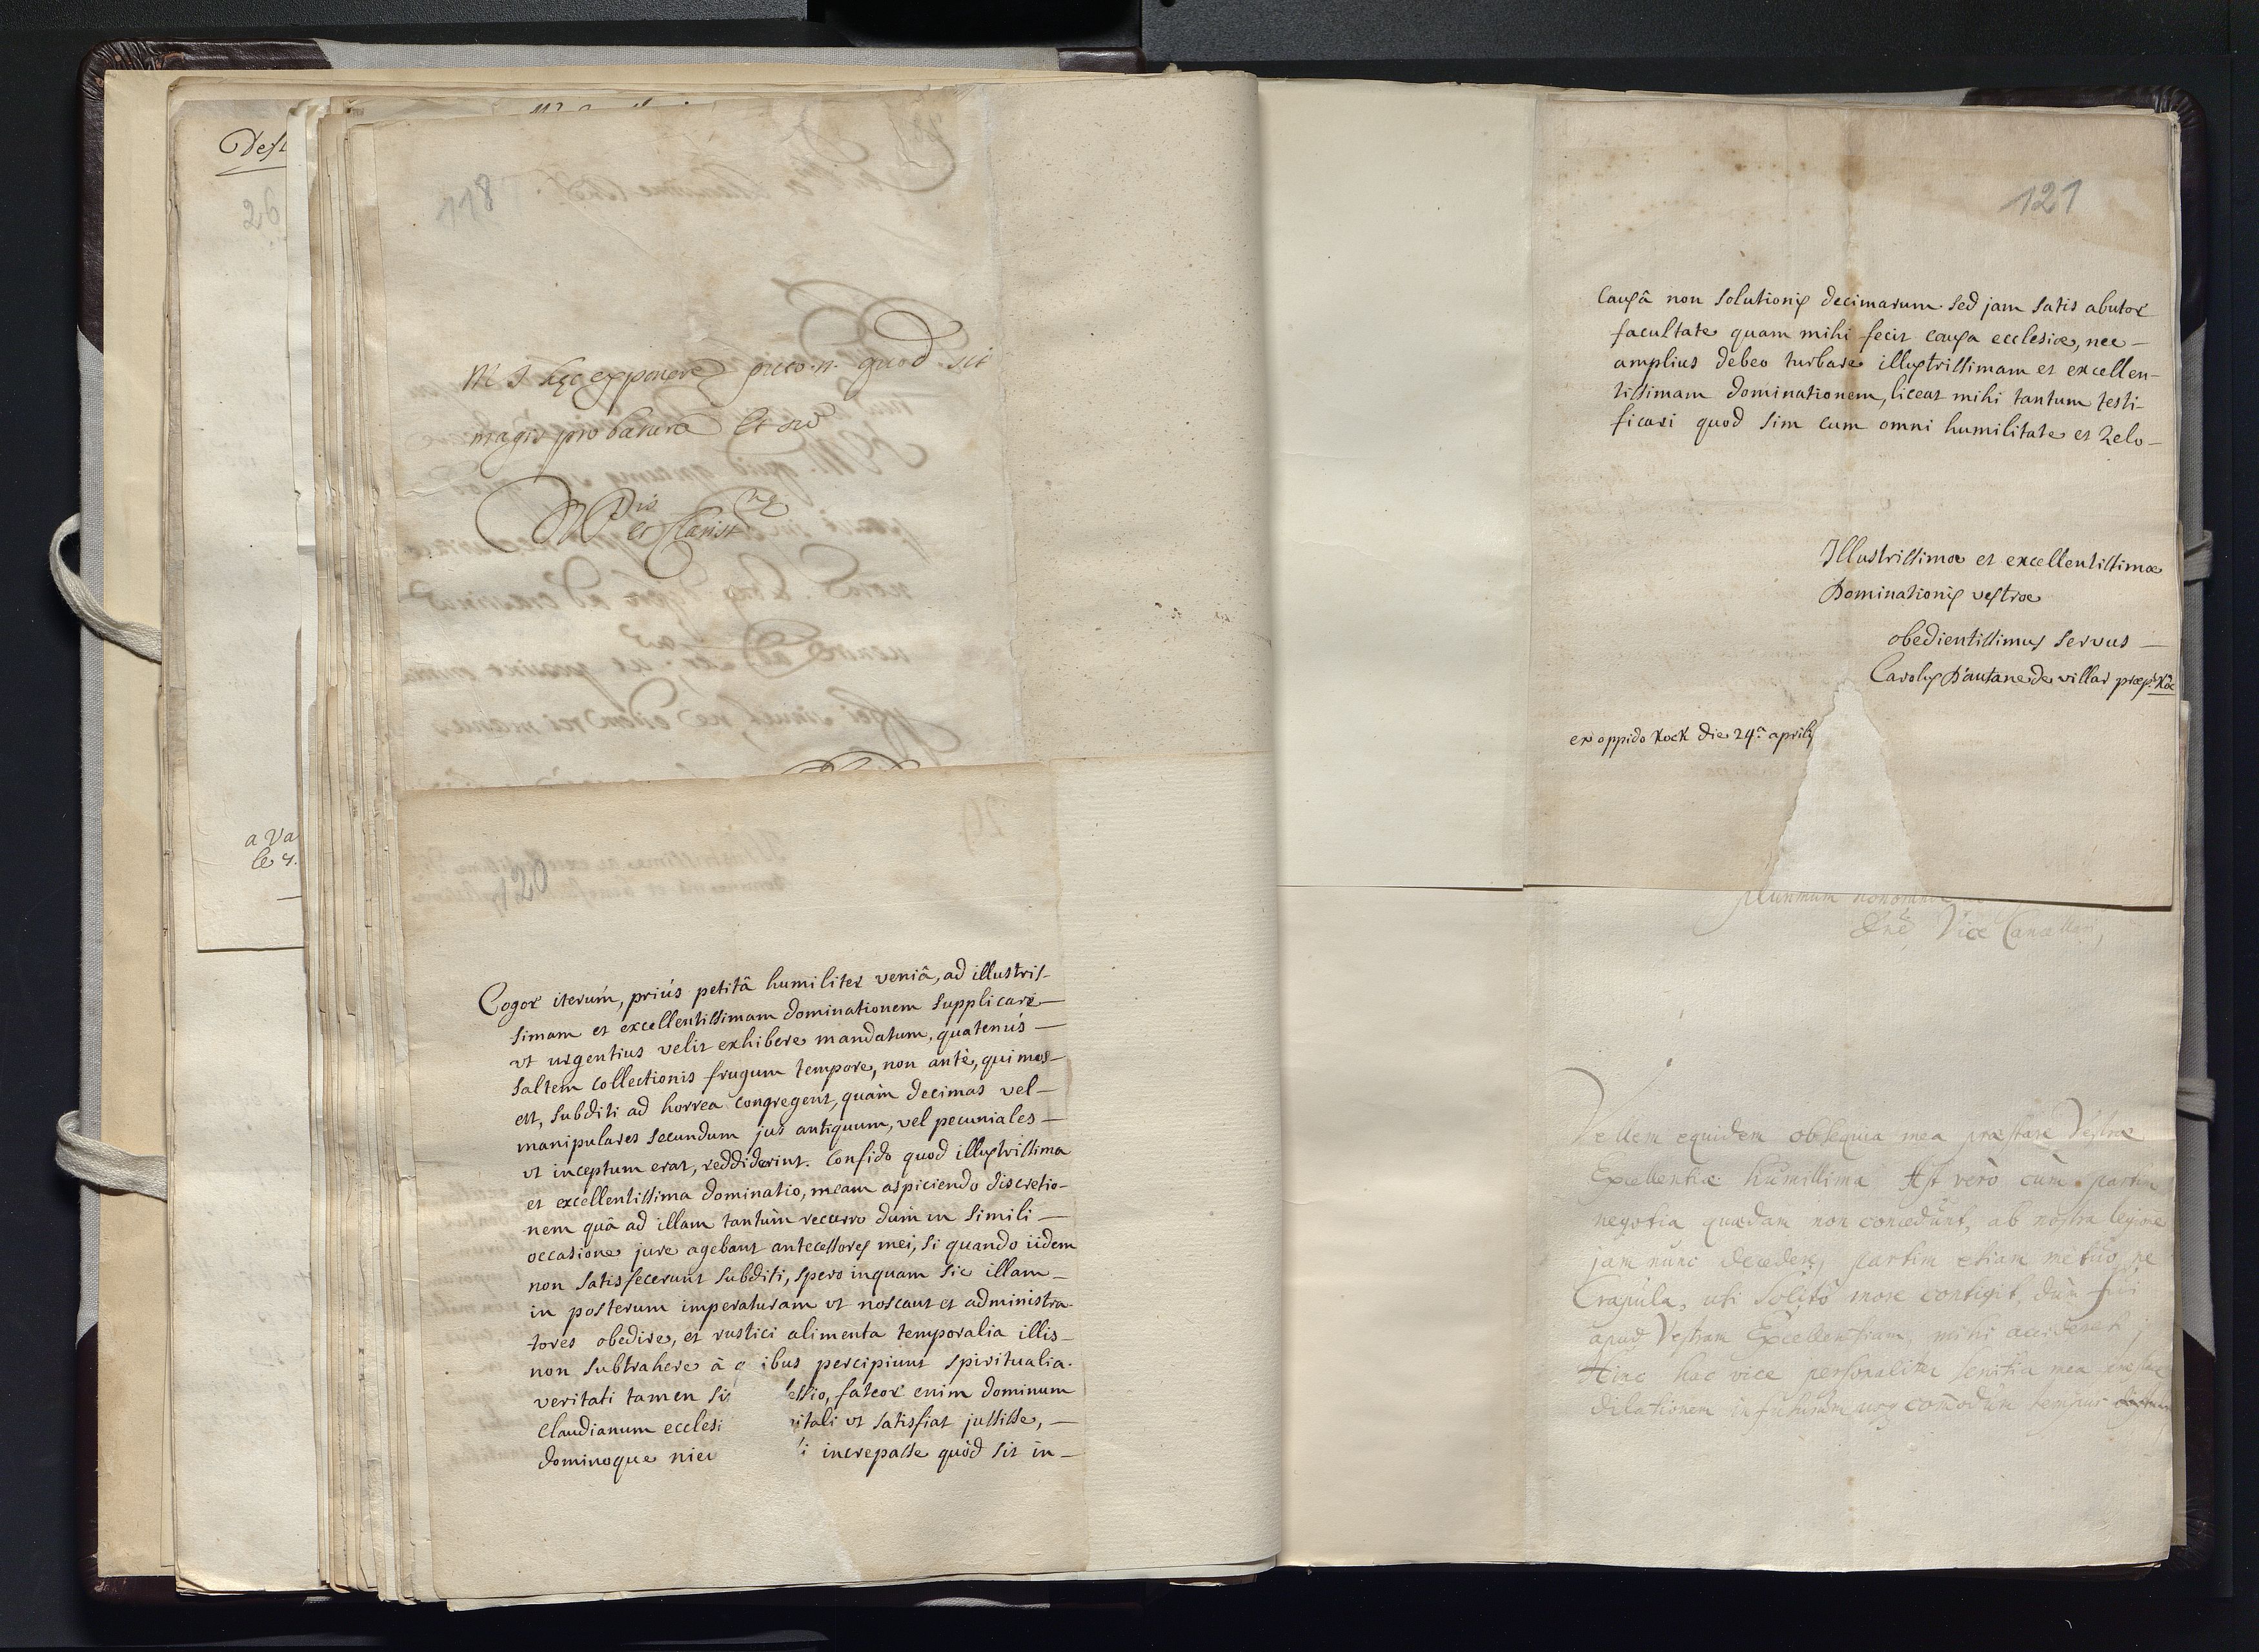 Dest
26
a Va
le 4.
118
M J hęc exponere quod sit
magis
et Clariss
120
Cogor iterum, priùs petitâ humiliter veniâ, ad illustris-
simam et excellentissimam dominationem supplicare—
vt urgentius velit exhibere mandatum, quatenùs—
saltem collectionis frugum tempore, non antè, qui mos—
est, subditi ad horrea congregent, quàm decimas vel—
manipulares secundum jus antiquum, vel pecuniales—
vt inceptum erat, reddiderint. Confido quod illustrissima
et excellentissima dominatio, meam aspiciendo discretio-
nem quâ ad illam tantùm recurro dum in simili—
occasione jure agebant antecessores mei, si quando iidem
non satisfecerunt subditi, spero inquam sic illam—
in posterum imperaturam vt noscant et administra-
tores obedire, et rustici alimenta temporalia illis—
non subtrahere à q ibus percipiunt spiritualia.
veritati tamen si essio, fateor enim dominum
Claudianum ecclesi itali vt satisfiat jussisse,—
dominoque nieu i increpasse quòd sit in—
121
causâ non solutionis decimarum. sed jam satis abutor
facultate quam mihi fecit causa ecclesiæ, nec—
amplius debeo turbare illustrissimam et excellen-
tissimam dominationem, liceat mihi tantum testi-
ficari quod sim cum omni humilitate et zelo—
Illustrissimæ et excellentissimæ
Dominationis vestræ
obedientissimus servus—
Carolus D'autane de villar præp.
ex oppido Kock die 24.a aprilis
Vice Cancellari,
Vellem equidem obsequia mea præstare Vestræ
Excellentiæ humillima Ast verò cùm partim
negotia quædam non concedunt, ab nostra legione
jam nunc decedere, partim etiam metuo ne
Crapula, uti solito more contigit, dùm fui
apud Vestram Excellentiam, mihi accideret
Hinc hac vice personaliter servitia mea
dilationem in futurum usq comodum tempus